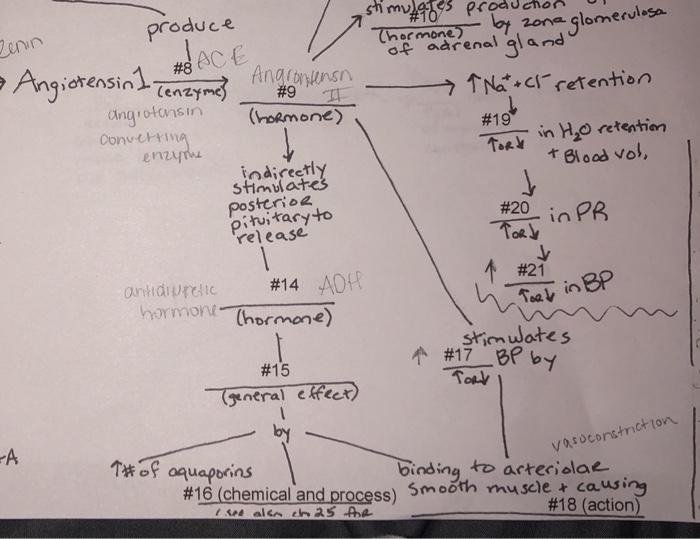 stimulates production of
#10 by zona glomerulosa
(hormone)
of adrenal gland
produce
Renin
#8 ACE
Angiotensin 1
(enzyme)
angiotensin
converting
enzyme
Angiotensin
II
#9
(hormone)
↑Na+ + Cl- retention
#19 in H2O retention
↑ or ↓ + Blood vol,
#20 in PR
↑ or ↓
↑ #21 in BP
↑ or ↓
indirectly
stimulates
posterior
pituitary to
release
#14 ADH
antidiuretic
hormone
(hormone)
#15
(general effect)
by
stimulates
↑ #17 BP by
↑ or ↓
vasoconstriction
-A
↑# of aquaporins
#16 (chemical and process)
(see also ch 25 the
binding to arteriolar
smooth muscle + causing
#18 (action)